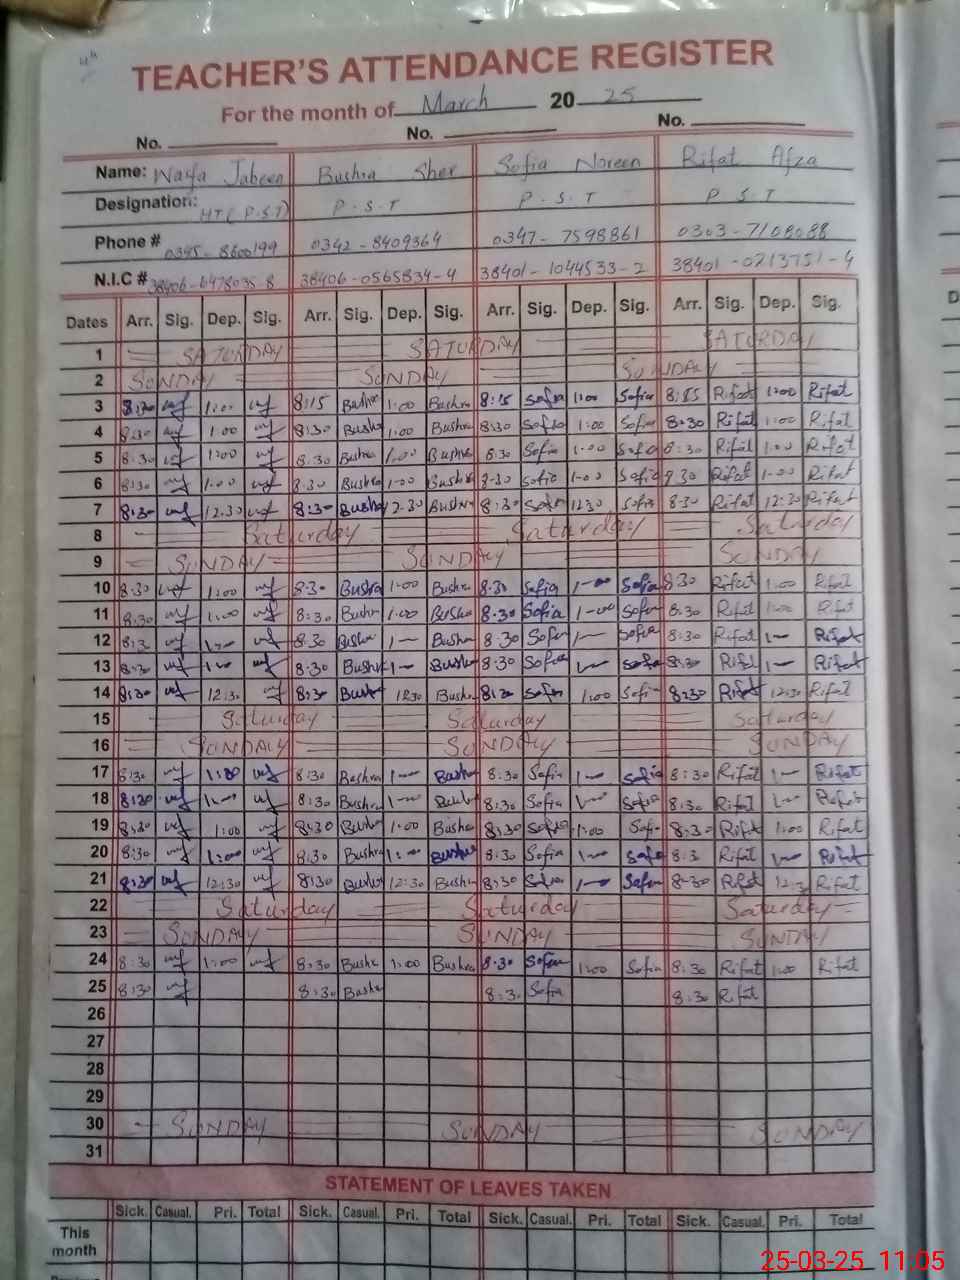 TEACHER'S ATTENDANCE REGISTER
For the month of March 20 25
No. No. No.
Name: Jabeen Bushra Sher Sofia Noreen Rifat Afza
Designation: HT (P.S.T) P.S.T P.S.T P.S.T
Phone # 0342-8409364 0347-7598861
N.I.C # 38406-0565834-4 38401-1044533-2
Dates Arr. Sig. Dep. Sig. Arr. Sig. Dep. Sig. Arr. Sig. Dep. Sig. Arr. Sig. Dep. Sig.
1 SATURDAY SATURDAY SATURDAY
2 SUNDAY SUNDAY SUNDAY
3 8:30 1:00 8:15 Bushra 1:00 Bushra 8:15 Sofia 1:00 Sofia Rifat 1:00 Rifat
4 8:30 1:00 8:30 Bushra 1:00 Bushra 8:30 Sofia 1:00 Sofia 8:30 Rifat 1:00 Rifat
5 8:30 1:00 8:30 Bushra 1:00 Bushra 8:30 Sofia 1:00 Sofia 8:30 Rifat 1:00 Rifat
6 8:30 1:00 8:30 Bushra 1:00 Bushra 8:30 Sofia 1:00 Sofia Rifat 1:00 Rifat
7 8:30 12:30 8:30 Bushra 12:30 Bushra 8:30 Sofia 12:30 Sofia 8:30 Rifat 12:30 Rifat
8 Saturday Saturday Saturday
9 SUNDAY SUNDAY SUNDAY
10 8:30 1:00 8:30 Bushra 1:00 Bushra 8:30 Sofia 1:00 Sofia 8:30 Rifat 1:00 Rifat
11 8:30 1:00 8:30 Bushra 1:00 Bushra 8:30 Sofia 1:00 Sofia 8:30 Rifat 1:00 Rifat
12 8:30 1:00 8:30 Bushra 1— Bushra 8:30 Sofia 1— Sofia 8:30 Rifat 1— Rifat
13 8:30 1:00 8:30 Bushra 1— Bushra 8:30 Sofia 1— Sofia 8:30 Rifat 1— Rifat
14 8:30 12:30 8:30 Bushra 12:30 Bushra 8:30 Sofia 1:00 Sofia 8:30 Rifat 12:30 Rifat
15 Saturday Saturday Saturday
16 SUNDAY SUNDAY SUNDAY
17 8:30 1:00 8:30 Bushra 1— Bushra 8:30 Sofia 1— Sofia 8:30 Rifat 1— Rifat
18 8:30 1:00 8:30 Bushra 1— Bushra 8:30 Sofia 1— Sofia 8:30 Rifat 1— Rifat
19 8:30 1:00 8:30 Bushra 1:00 Bushra 8:30 Sofia 1:00 Sofia 8:30 Rifat 1:00 Rifat
20 8:30 1:00 8:30 Bushra 1:00 Bushra 8:30 Sofia 1— Sofia 8:3 Rifat 1— Rifat
21 8:30 12:30 8:30 Bushra 12:30 Bushra 8:30 Sofia 1— Sofia 8:30 Rifat 12:30 Rifat
22 Saturday Saturday Saturday
23 SUNDAY SUNDAY SUNDAY
24 8:30 1:00 8:30 Bushra 1:00 Bushra 8:30 Sofia 1:00 Sofia 8:30 Rifat 1:00 Rifat
25 8:30 8:30 Bushra 8:30 Sofia 8:30 Rifat
26
27
28
29
30 SUNDAY SUNDAY SUNDAY
31
STATEMENT OF LEAVES TAKEN
Sick. Casual. Pri. Total Sick. Casual. Pri. Total Sick. Casual. Pri. Total Sick. Casual. Pri. Total
This month
25-03-25 11:05